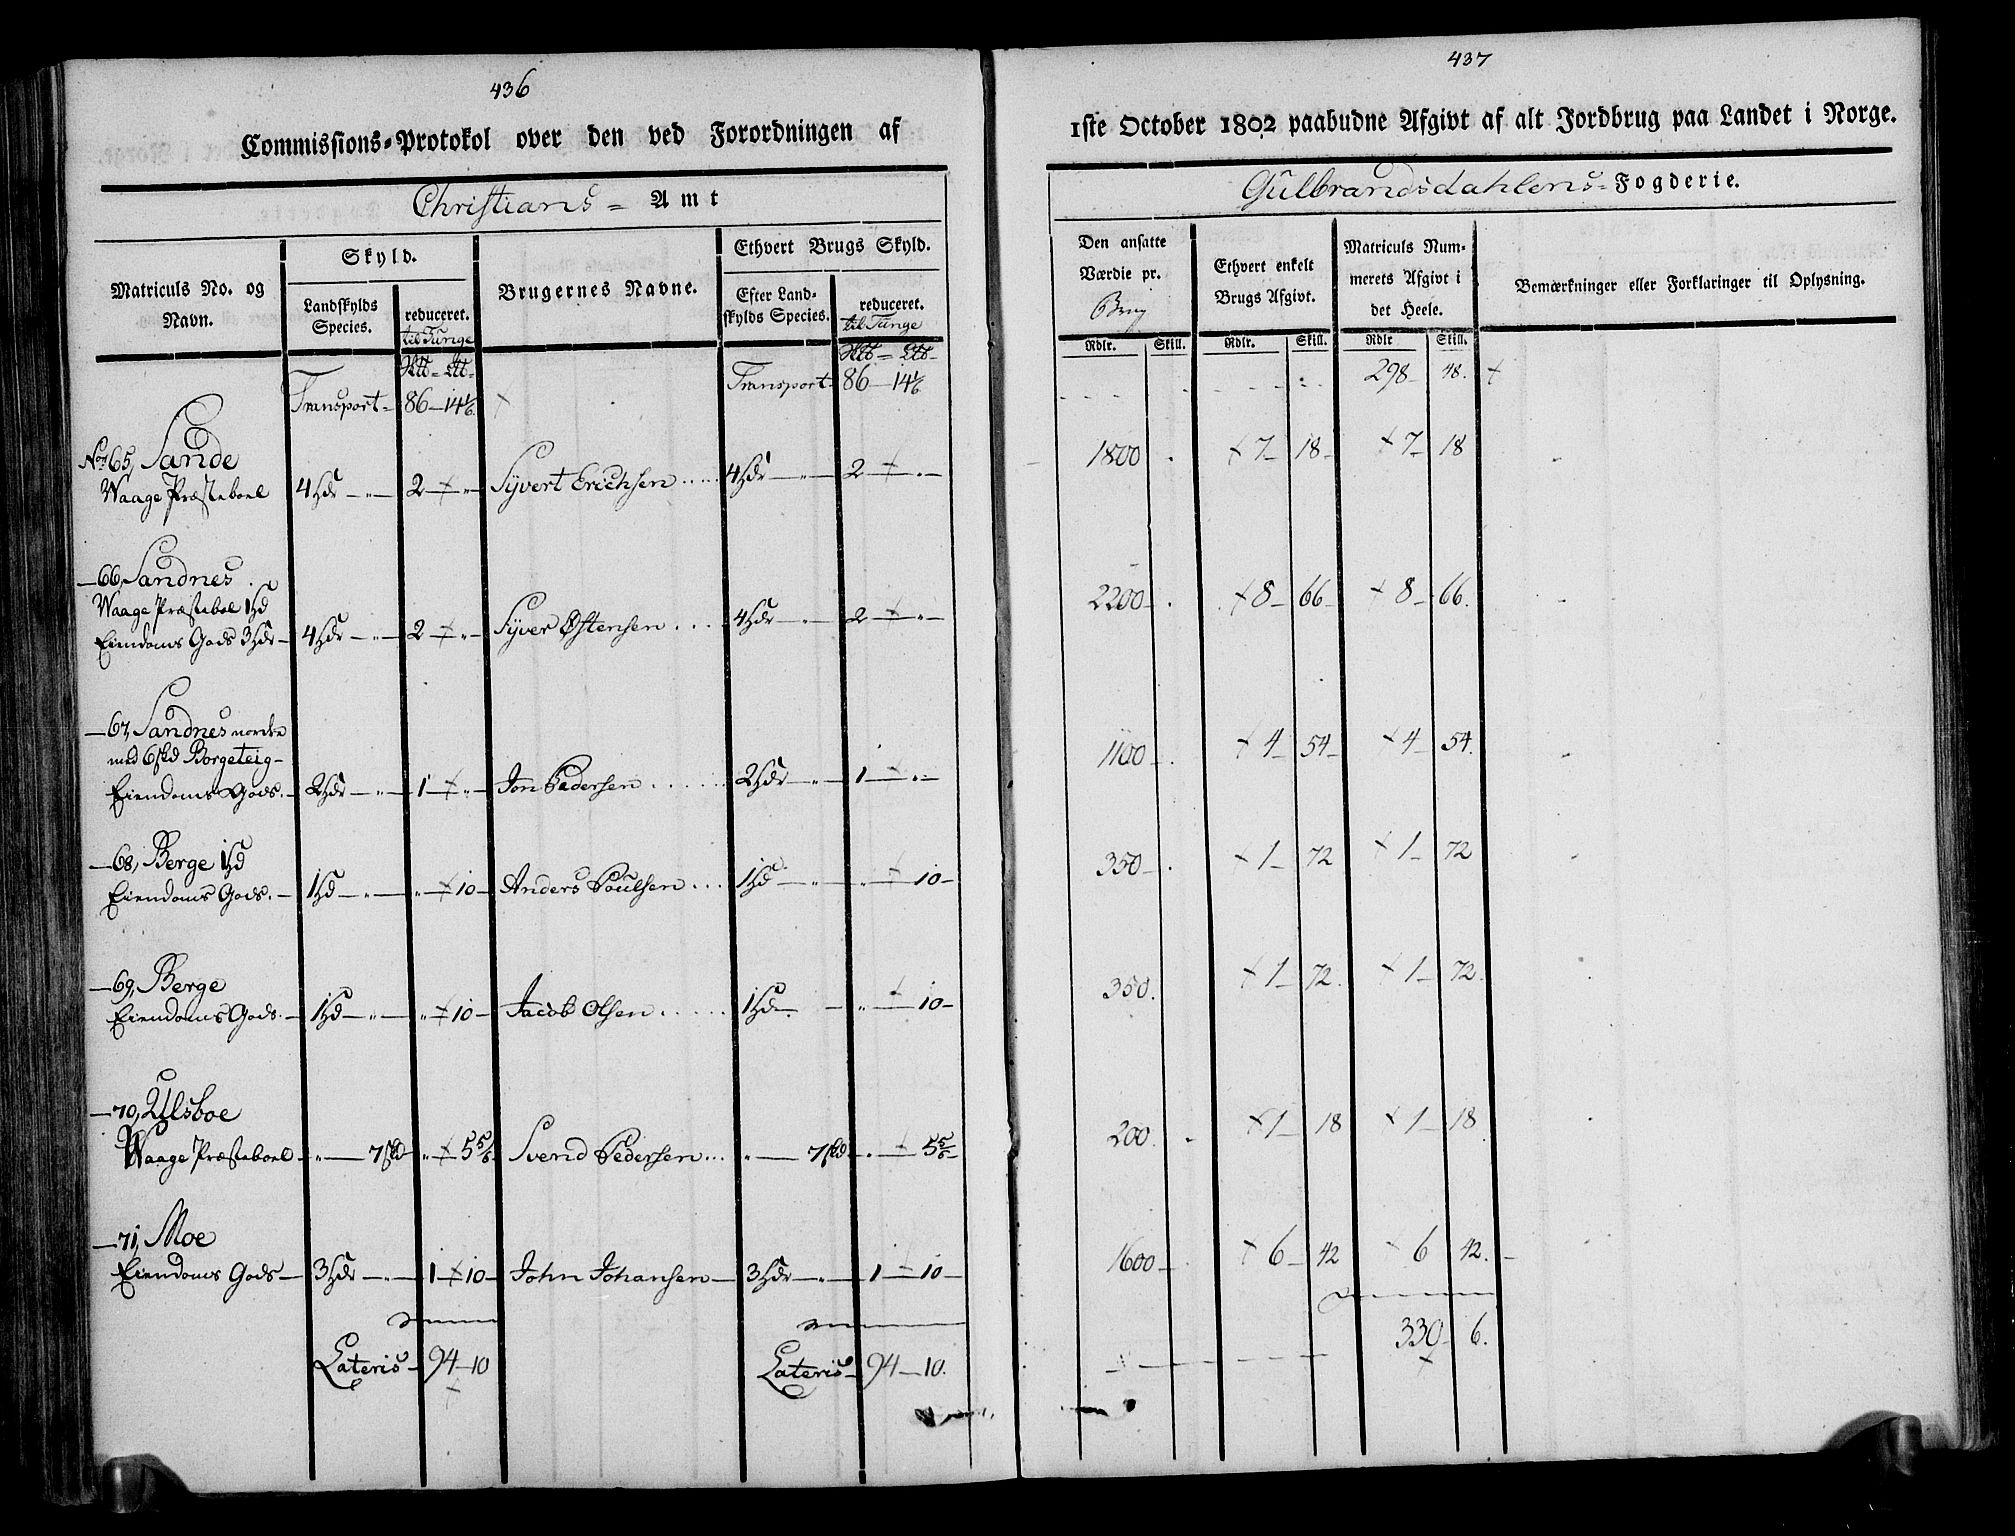 436
Commissions-Protokol over den ved Forordningen af
Christians = Amt
Matriculs No. og Navn.
Skyld.
Landskylds Species.
reduceret.
til Tunge
Brugernes Navne.
Ethvert Brugs Skyld.
Efter Landskylds Species.
reduceret.
til Tunge
Transport - 86 - 14 1/6
Transport - 86 - 14 1/6
No 65, Sande
Waage Præsteboel 4 Hdr - " - 2 - " - Syvert Erichsen ..... 4 Hdr - " - 2 - " -
- 66, Sandnes
Waage Præstebol 1 Hd
Eiendoms Gods 3 Hdr - 4 Hdr - " - 2 - " - Syver Østensen .... 4 Hdr - " - 2 - " -
- 67, Sandnes nordre
med 6 skd Borgeteig -
Eiendoms Gods. - 2 Hdr - " - 1 - " - Jon Pedersen ...... 2 Hdr - " - 1 - " -
- 68, Berge 1 Hd
Eiendoms Gods. - 1 Hd - " - " - 10 - Anders Poulsen ... 1 Hd - " - " - 10 -
- 69, Berge
Eiendoms Gods. - 1 Hd - " - " - 10 - Jacob Olsen ...... 1 Hd - " - 10 -
- 70, Ulsboe
Waage Præsteboel - " - 7 skd " - 5 5/6 Svend Pedersen ... " - 7 skd - " - 5 5/6 -
- 71, Moe
Eiendoms Gods - 3 Hdr - " - 1 - 10 - John Johansen - 3 Hdr - " - 1 - 10 -
Lateris - 94 - 10
Lateris - 94 - 10.
437
1ste October 1802 paabudne Afgivt af alt Jordbrug paa Landet i Norge.
Gulbrandsdahlens = Fogderie.
Den ansatte Værdie pr.
Brug
Ethvert enkelt Brugs Afgivt.
Matriculs Nummerets Afgivt i det Heele.
Bemærkninger eller Forklaringer til Oplysning.
Rdlr. Skill. Rdlr. Skill. Rdlr Skill.
298 - 48.
1800 . 7 - 18 - 7 - 18
2200 - . 8 - 66 - 8 - 66.
1100 - . 4 - 54 - 4 - 54.
350 - . 1 - 72 1 - 72
350. 1 - 72. 1 - 72.
200. 1 - 18 1 - 18
1600 - 6 - 42 6 42. -
330 - 6.